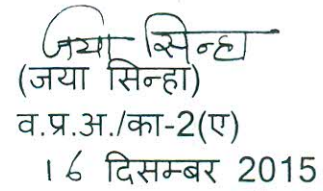 जया सिन्हा
(जया सिन्हा)
व.प्र.अ./का-2(ए)
16 दिसम्बर 2015